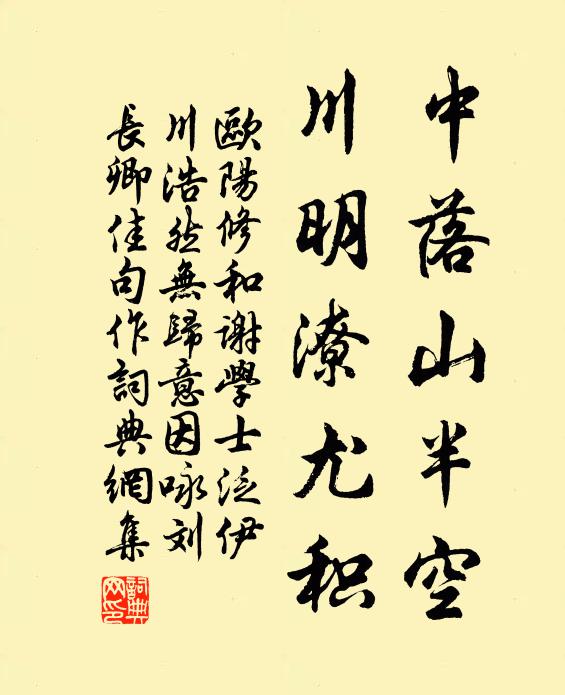 中落山半空
川明潦尤积
歐陽修和謝學士泛伊
川浩然無歸意因咏刘
長卿佳句作詞典網集
詞典网印